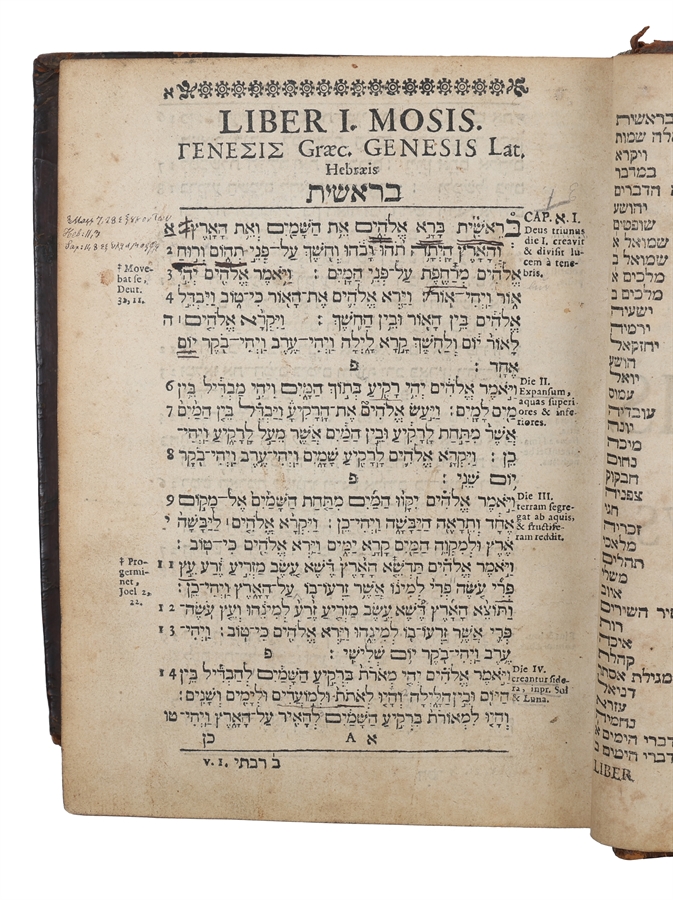 א
LIBER I. MOSIS.
ΓΕΝΕΣΙΣ Græc. GENESIS Lat.
Hebræis
בראשית
CAP. א. I.
Deus triunus
die I. creavit
& divisit lu-
cem à tene-
bris.
בְּרֵאשִׁית בָּרָא אֱלֹהִים אֵת הַשָּׁמַיִם וְאֵת הָאָרֶץ: א
וְהָאָרֶץ הָיְתָה תֹהוּ וָבֹהוּ וְחֹשֶׁךְ עַל־פְּנֵי תְהוֹם וְרוּחַ 2
אֱלֹהִים מְרַחֶפֶת עַל־פְּנֵי הַמָּיִם: וַיֹּאמֶר אֱלֹהִים יְהִי 3
אוֹר וַיְהִי־אוֹר: וַיַּרְא אֱלֹהִים אֶת־הָאוֹר כִּי־טוֹב וַיַּבְדֵּל 4
אֱלֹהִים בֵּין הָאוֹר וּבֵין הַחֹשֶׁךְ: וַיִּקְרָא אֱלֹהִים ה
לָאוֹר יוֹם וְלַחֹשֶׁךְ קָרָא לָיְלָה וַיְהִי־עֶרֶב וַיְהִי־בֹקֶר יוֹם
אֶחָד: פ
וַיֹּאמֶר אֱלֹהִים יְהִי רָקִיעַ בְּתוֹךְ הַמָּיִם וִיהִי מַבְדִּיל בֵּין 6
מַיִם לָמָיִם: וַיַּעַשׂ אֱלֹהִים אֶת־הָרָקִיעַ וַיַּבְדֵּל בֵּין הַמַּיִם 7
אֲשֶׁר מִתַּחַת לָרָקִיעַ וּבֵין הַמַּיִם אֲשֶׁר מֵעַל לָרָקִיעַ וַיְהִי־
כֵן: וַיִּקְרָא אֱלֹהִים לָרָקִיעַ שָׁמָיִם וַיְהִי־עֶרֶב וַיְהִי־בֹקֶר 8
יוֹם שֵׁנִי: פ
וַיֹּאמֶר אֱלֹהִים יִקָּווּ הַמַּיִם מִתַּחַת הַשָּׁמַיִם אֶל־מָקוֹם 9
אֶחָד וְתֵרָאֶה הַיַּבָּשָׁה וַיְהִי־כֵן: וַיִּקְרָא אֱלֹהִים לַיַּבָּשָׁה י
אֶרֶץ וּלְמִקְוֵה הַמַּיִם קָרָא יַמִּים וַיַּרְא אֱלֹהִים כִּי־טוֹב:
וַיֹּאמֶר אֱלֹהִים תַּדְשֵׁא הָאָרֶץ דֶּשֶׁא עֵשֶׂב מַזְרִיעַ זֶרַע עֵץ 11
פְּרִי עֹשֶׂה פְּרִי לְמִינוֹ אֲשֶׁר זַרְעוֹ־בוֹ עַל־הָאָרֶץ וַיְהִי־כֵן:
וַתּוֹצֵא הָאָרֶץ דֶּשֶׁא עֵשֶׂב מַזְרִיעַ זֶרַע לְמִינֵהוּ וְעֵץ עֹשֶׂה־ 12
פְּרִי אֲשֶׁר זַרְעוֹ־בוֹ לְמִינֵהוּ וַיַּרְא אֱלֹהִים כִּי־טוֹב: וַיְהִי־ 13
עֶרֶב וַיְהִי־בֹקֶר יוֹם שְׁלִישִׁי: פ
וַיֹּאמֶר אֱלֹהִים יְהִי מְאֹרֹת בִּרְקִיעַ הַשָּׁמַיִם לְהַבְדִּיל בֵּין 14
הַיּוֹם וּבֵין הַלָּיְלָה וְהָיוּ לְאֹתֹת וּלְמוֹעֲדִים וּלְיָמִים וְשָׁנִים:
וְהָיוּ לִמְאוֹרֹת בִּרְקִיעַ הַשָּׁמַיִם לְהָאִיר עַל־הָאָרֶץ וַיְהִי־ טו
א A כן
v. 1. ב רבתי
† Move-
bat se,
Deut.
32, 11.
† Pro-
germi-
net,
Joel 2,
22.
Die II.
Expansum,
aquas superi
ores & infe-
riores.
Die III.
terram segre-
gat ab aquis,
& fructife-
ram reddit.
Die IV.
creantur side-
ra, inpr. Sol
& Luna.
בראשית
אלה שמות
ויקרא
במדבר
הדברים
יהושע
שופטים
שמואל א
שמואל ב
מלכים א
מלכים ב
ישעיה
ירמיה
יחזקאל
הושע
יואל
עמוס
עובדיה
יונה
מיכה
נחום
חבקוק
צפניה
חגי
זכריה
מלאכי
תהלים
משלי
איוב
שיר השירים
רות
איכה
קהלת
מגילת אסתר
דניאל
עזרא
נחמיה
דברי הימים א
דברי הימים ב
LIBER